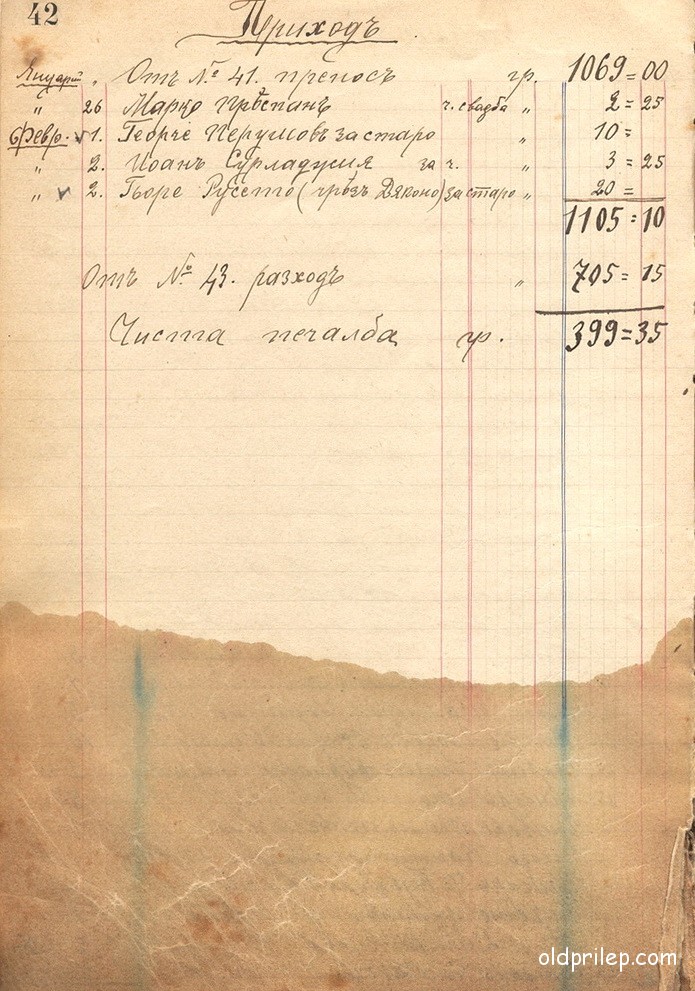 42
Приходъ
Януарий „ Отъ № 41. преносъ гр. 1069=00
„ 26 Марко Прѣспанъ ч. свадба „ 2=25
Февр. 1. Георче Перумовъ за старо „ 10=
„ 2. Иоанъ Сурладџия за ч. „ 3=25
„ 2. Ѓоре Русето (чрѣзъ Дяконо) за старо „ 20=
1105=10
Отъ № 43. разходъ „ 705=15
Чиста печалба гр. 399=35
oldprilep.com